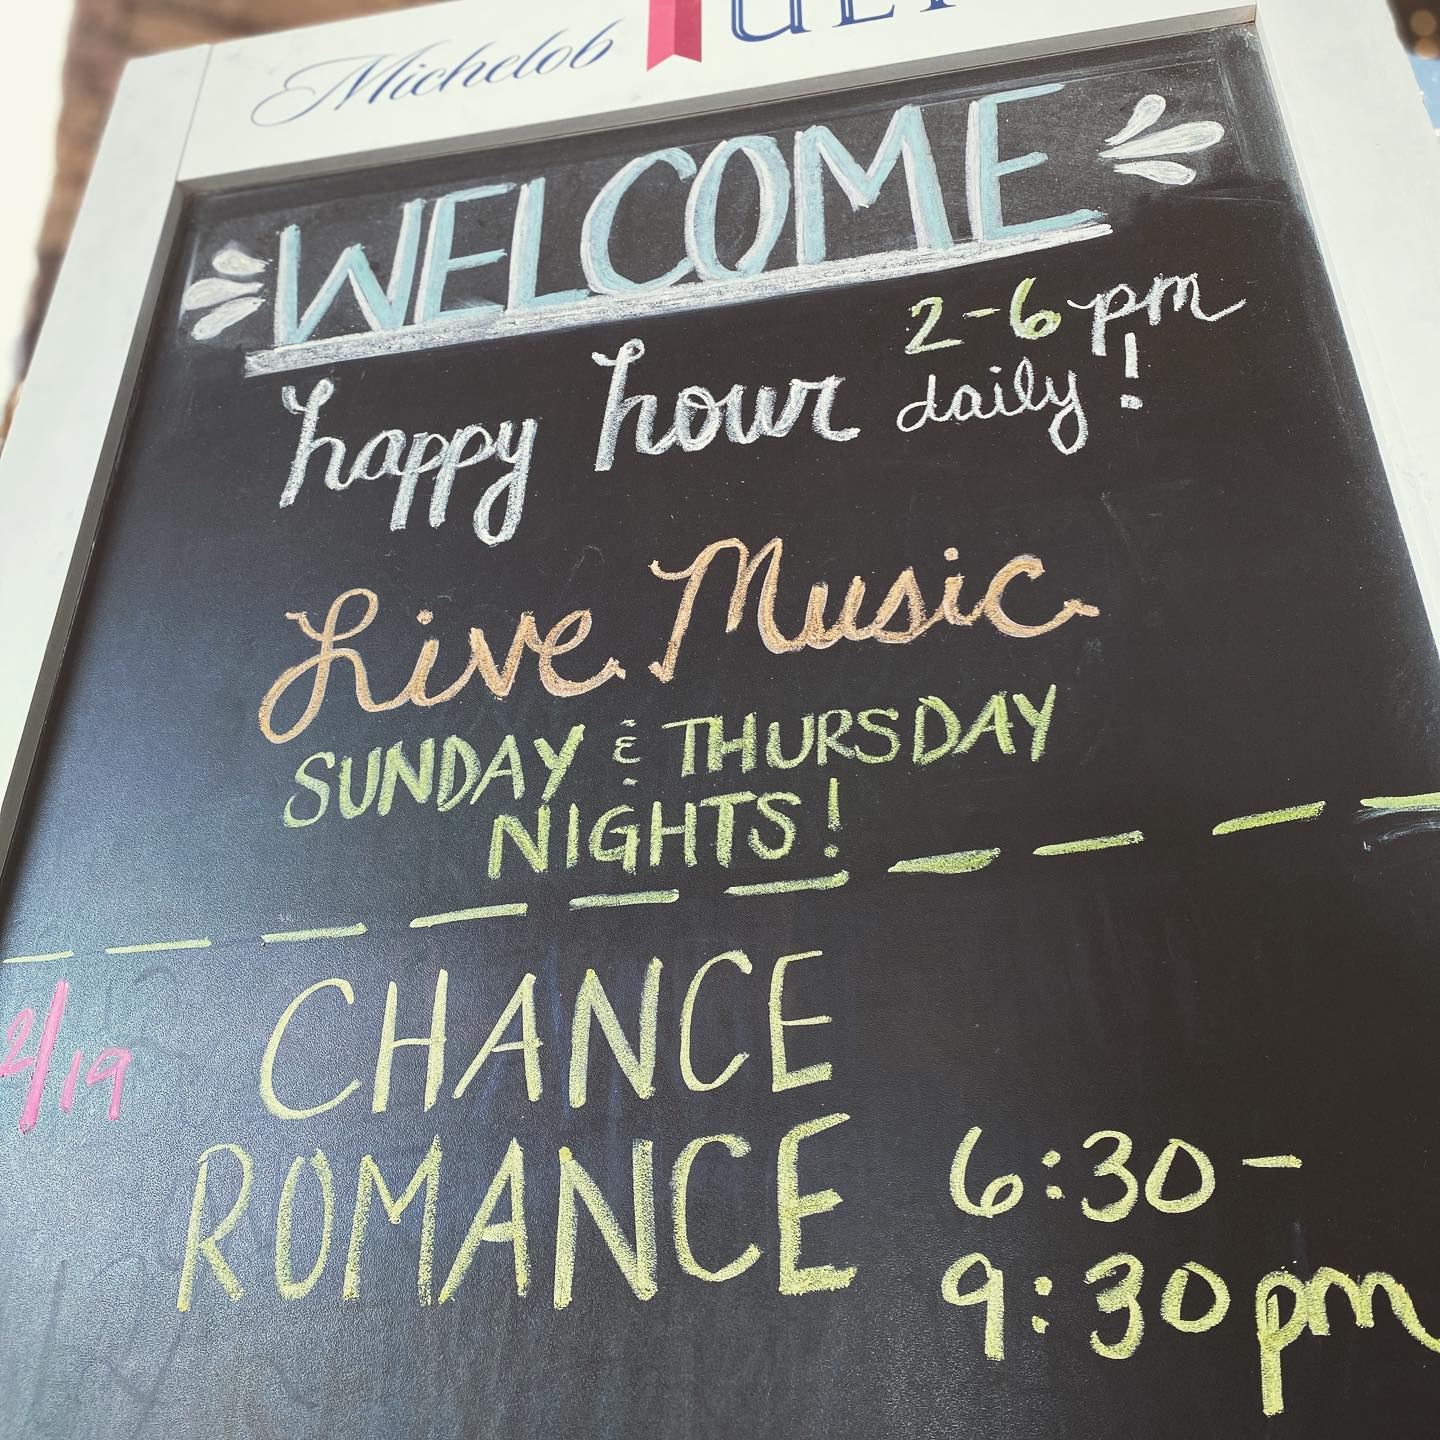 Michelob
WELCOME
happy hour 2-6pm
daily!
Live Music
SUNDAY & THURSDAY
NIGHTS!
2/19 CHANCE
ROMANCE 6:30-
9:30pm